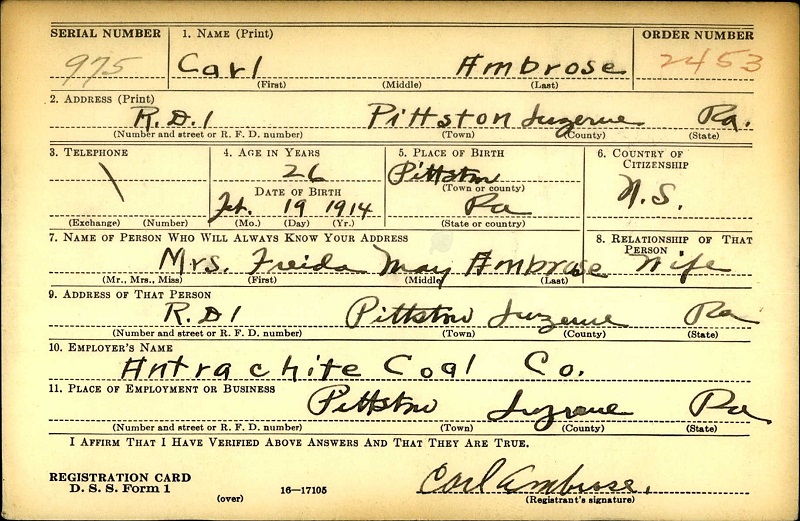 SERIAL NUMBER 1. NAME (Print) ORDER NUMBER
975 Carl Ambrose 2453
(First) (Middle) (Last)
2. ADDRESS (Print)
R.D.1 Pittston Luzerne Pa.
(Number and street or R. F. D. number) (Town) (County) (State)
3. TELEPHONE 4. AGE IN YEARS 5. PLACE OF BIRTH 6. COUNTRY OF CITIZENSHIP
26 Pittston
DATE OF BIRTH (Town or county) U.S.
Feb. 19 1914 Pa
(Exchange) (Number) (Mo.) (Day) (Yr.) (State or country)
7. NAME OF PERSON WHO WILL ALWAYS KNOW YOUR ADDRESS 8. RELATIONSHIP OF THAT PERSON
Mrs. Freida May Ambrose Wife
(Mr., Mrs., Miss) (First) (Middle) (Last)
9. ADDRESS OF THAT PERSON
R.D1 Pittston Luzerne Pa
(Number and street or R. F. D. number) (Town) (County) (State)
10. EMPLOYER'S NAME
Antrachite Coal Co.
11. PLACE OF EMPLOYMENT OR BUSINESS
Pittston Luzrene Pa
(Number and street or R. F. D. number) (Town) (County) (State)
I AFFIRM THAT I HAVE VERIFIED ABOVE ANSWERS AND THAT THEY ARE TRUE.
REGISTRATION CARD
D. S. S. Form 1 (over) 16—17105 Carl Ambrose.
(Registrant's signature)